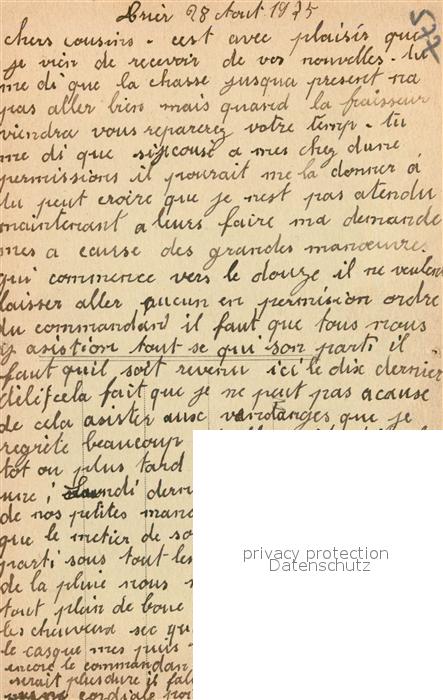 Trier 28 Aout 1925
577
chers cousins. cest avec plaisir que
je vien de recevoir de vos nouvelles. tu
me di que la chasse jusqua present na
pas aller bien mais quand la fraisseur
viendra vous reparerez votre temp. tu
me di que si jecouse a mes chez dune
permissions il pourait me la donner a
tu peut croire que je nest pas atendu
maintenant a leurs faire ma demande
mes a causse des grandes manœuvre.
qui commence vers le douze il ne veulent
laisser aller aucun en permision ordre
du commandant il faut que tous nous
y asistion tout se qui son parti il
faut quil soit revenu ici le dix dernier
délif cela fait que je ne peut pas acause
de cela asister aux vendanges que je
regrete beaucoup
tot ou plus tard
mre i lundi derni
de nos petites mano
que le metier de so
parti sous tout les
de la pluie nous
tout plain de boue
les cheuveux sec qu
le casque mes puis
encore le commandan
serait plus dure il fal
cordiale poi
privacy protection
Datenschutz